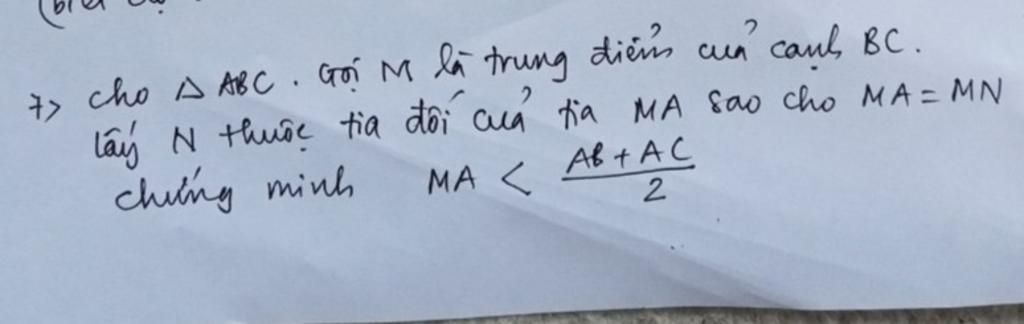 7> cho △ ABC. Gọi M là trung điểm của cạnh BC.
lấy N thuộc tia đối của tia MA sao cho MA = MN
chứng minh MA < \frac{AB + AC}{2}